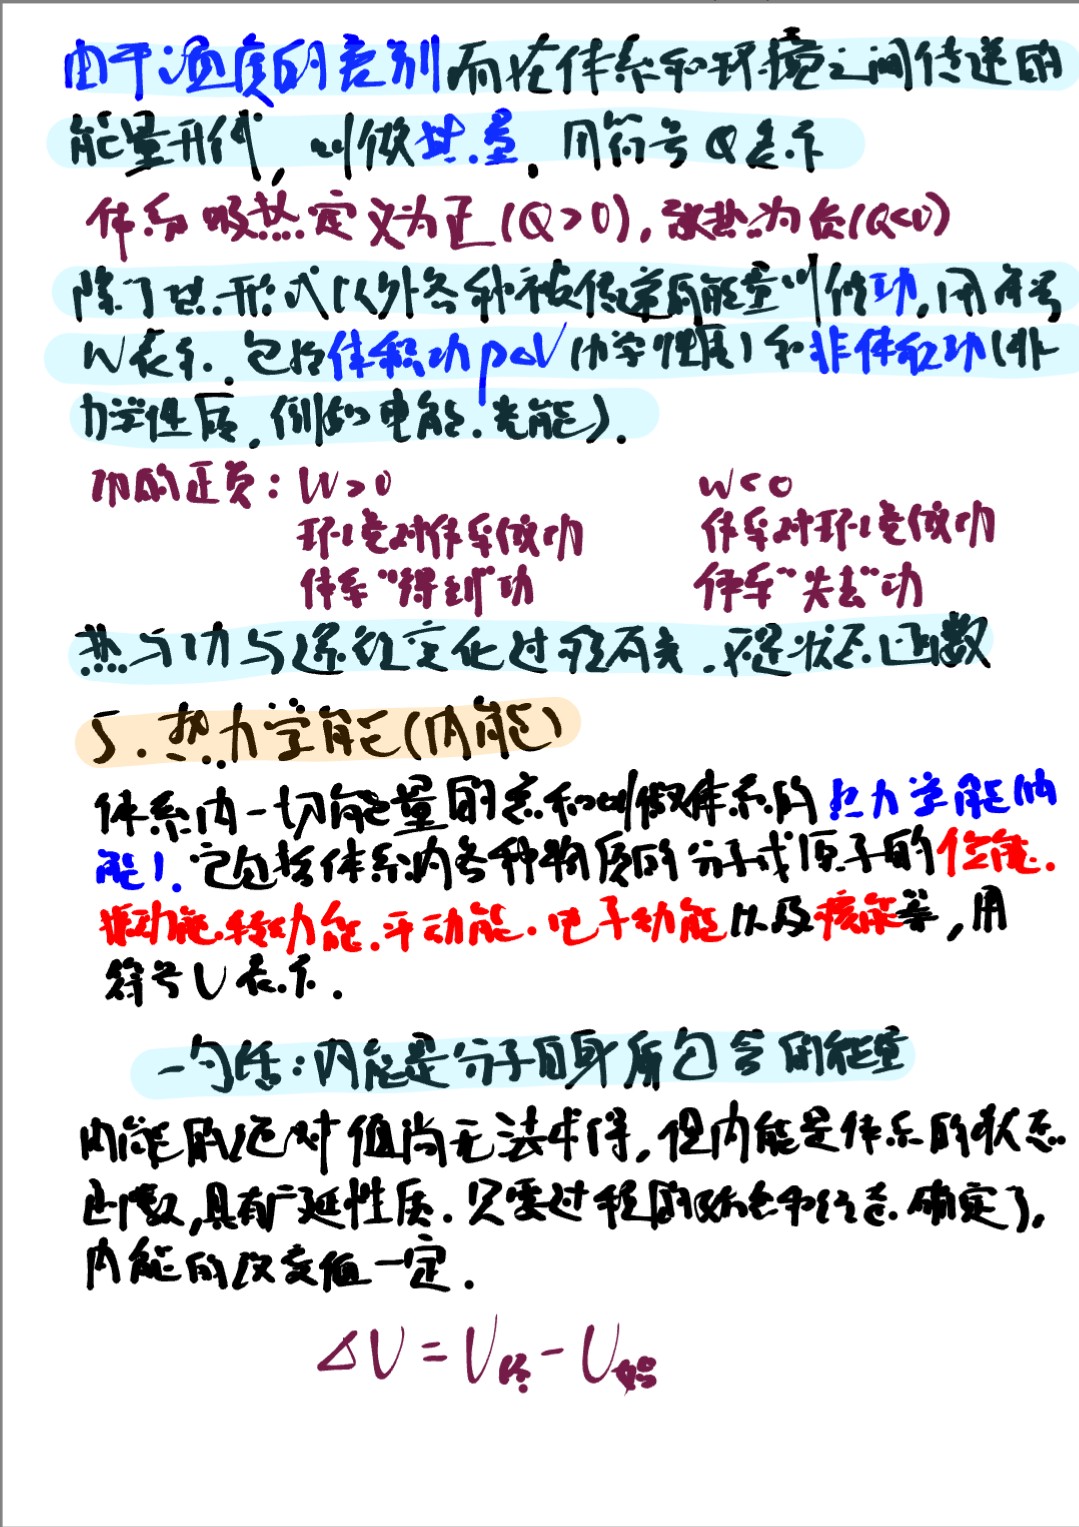 由于温度的差别而在体系和环境之间传递的
能量形式,叫做热量.用符号Q表示
体系吸热定义为正(Q>0),放热为负(Q<0)
除了热形式以外各种被传递的能量叫做功,用符号
W表示.包括体积功pΔV(力学性质)和非体积功(非
力学性质,例如电能.光能).
功的正负:W>0 W<0
环境对体系做功 体系对环境做功
体系“得到”功 体系“失去”功
热与功与途径变化过程有关.不是状态函数
5.热力学能(内能)
体系内一切能量的总和叫做体系的热力学能(内
能).它包括体系内各种物质的分子或原子的位能.
振动能.转动能.平动能.电子动能以及核能等,用
符号U表示.
一句话:内能是分子自身所包含的能量
内能的绝对值尚无法求得,但内能是体系的状态
函数,具有广延性质.只要过程的始态和终态确定了,
内能的改变值一定.
ΔU=U终-U始